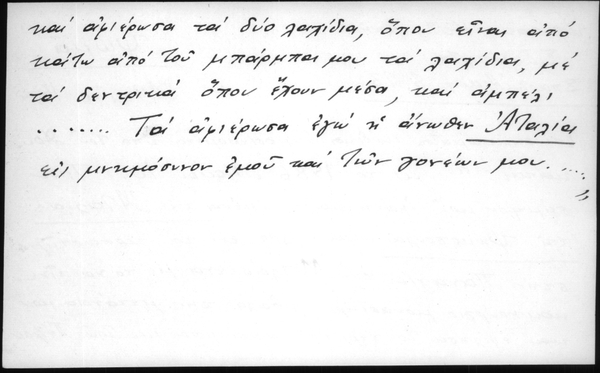 καί ἀφιέρωσα τά δύο λαχίδια, ὅπου εἶναι ἀπό
κάτω ἀπό τοῦ μπάρμπα μου τά λαχίδια, μέ
τά δεντρικά ὅπου ἔχουν μέσα, καί ἀμπέλι
........ Τά ἀφιέρωσα ἐγώ ἡ ἄνωθεν Ἀταλία
εἰς μνημόσυνον ἐμοῦ καί τῶν γονέων μου.....
»